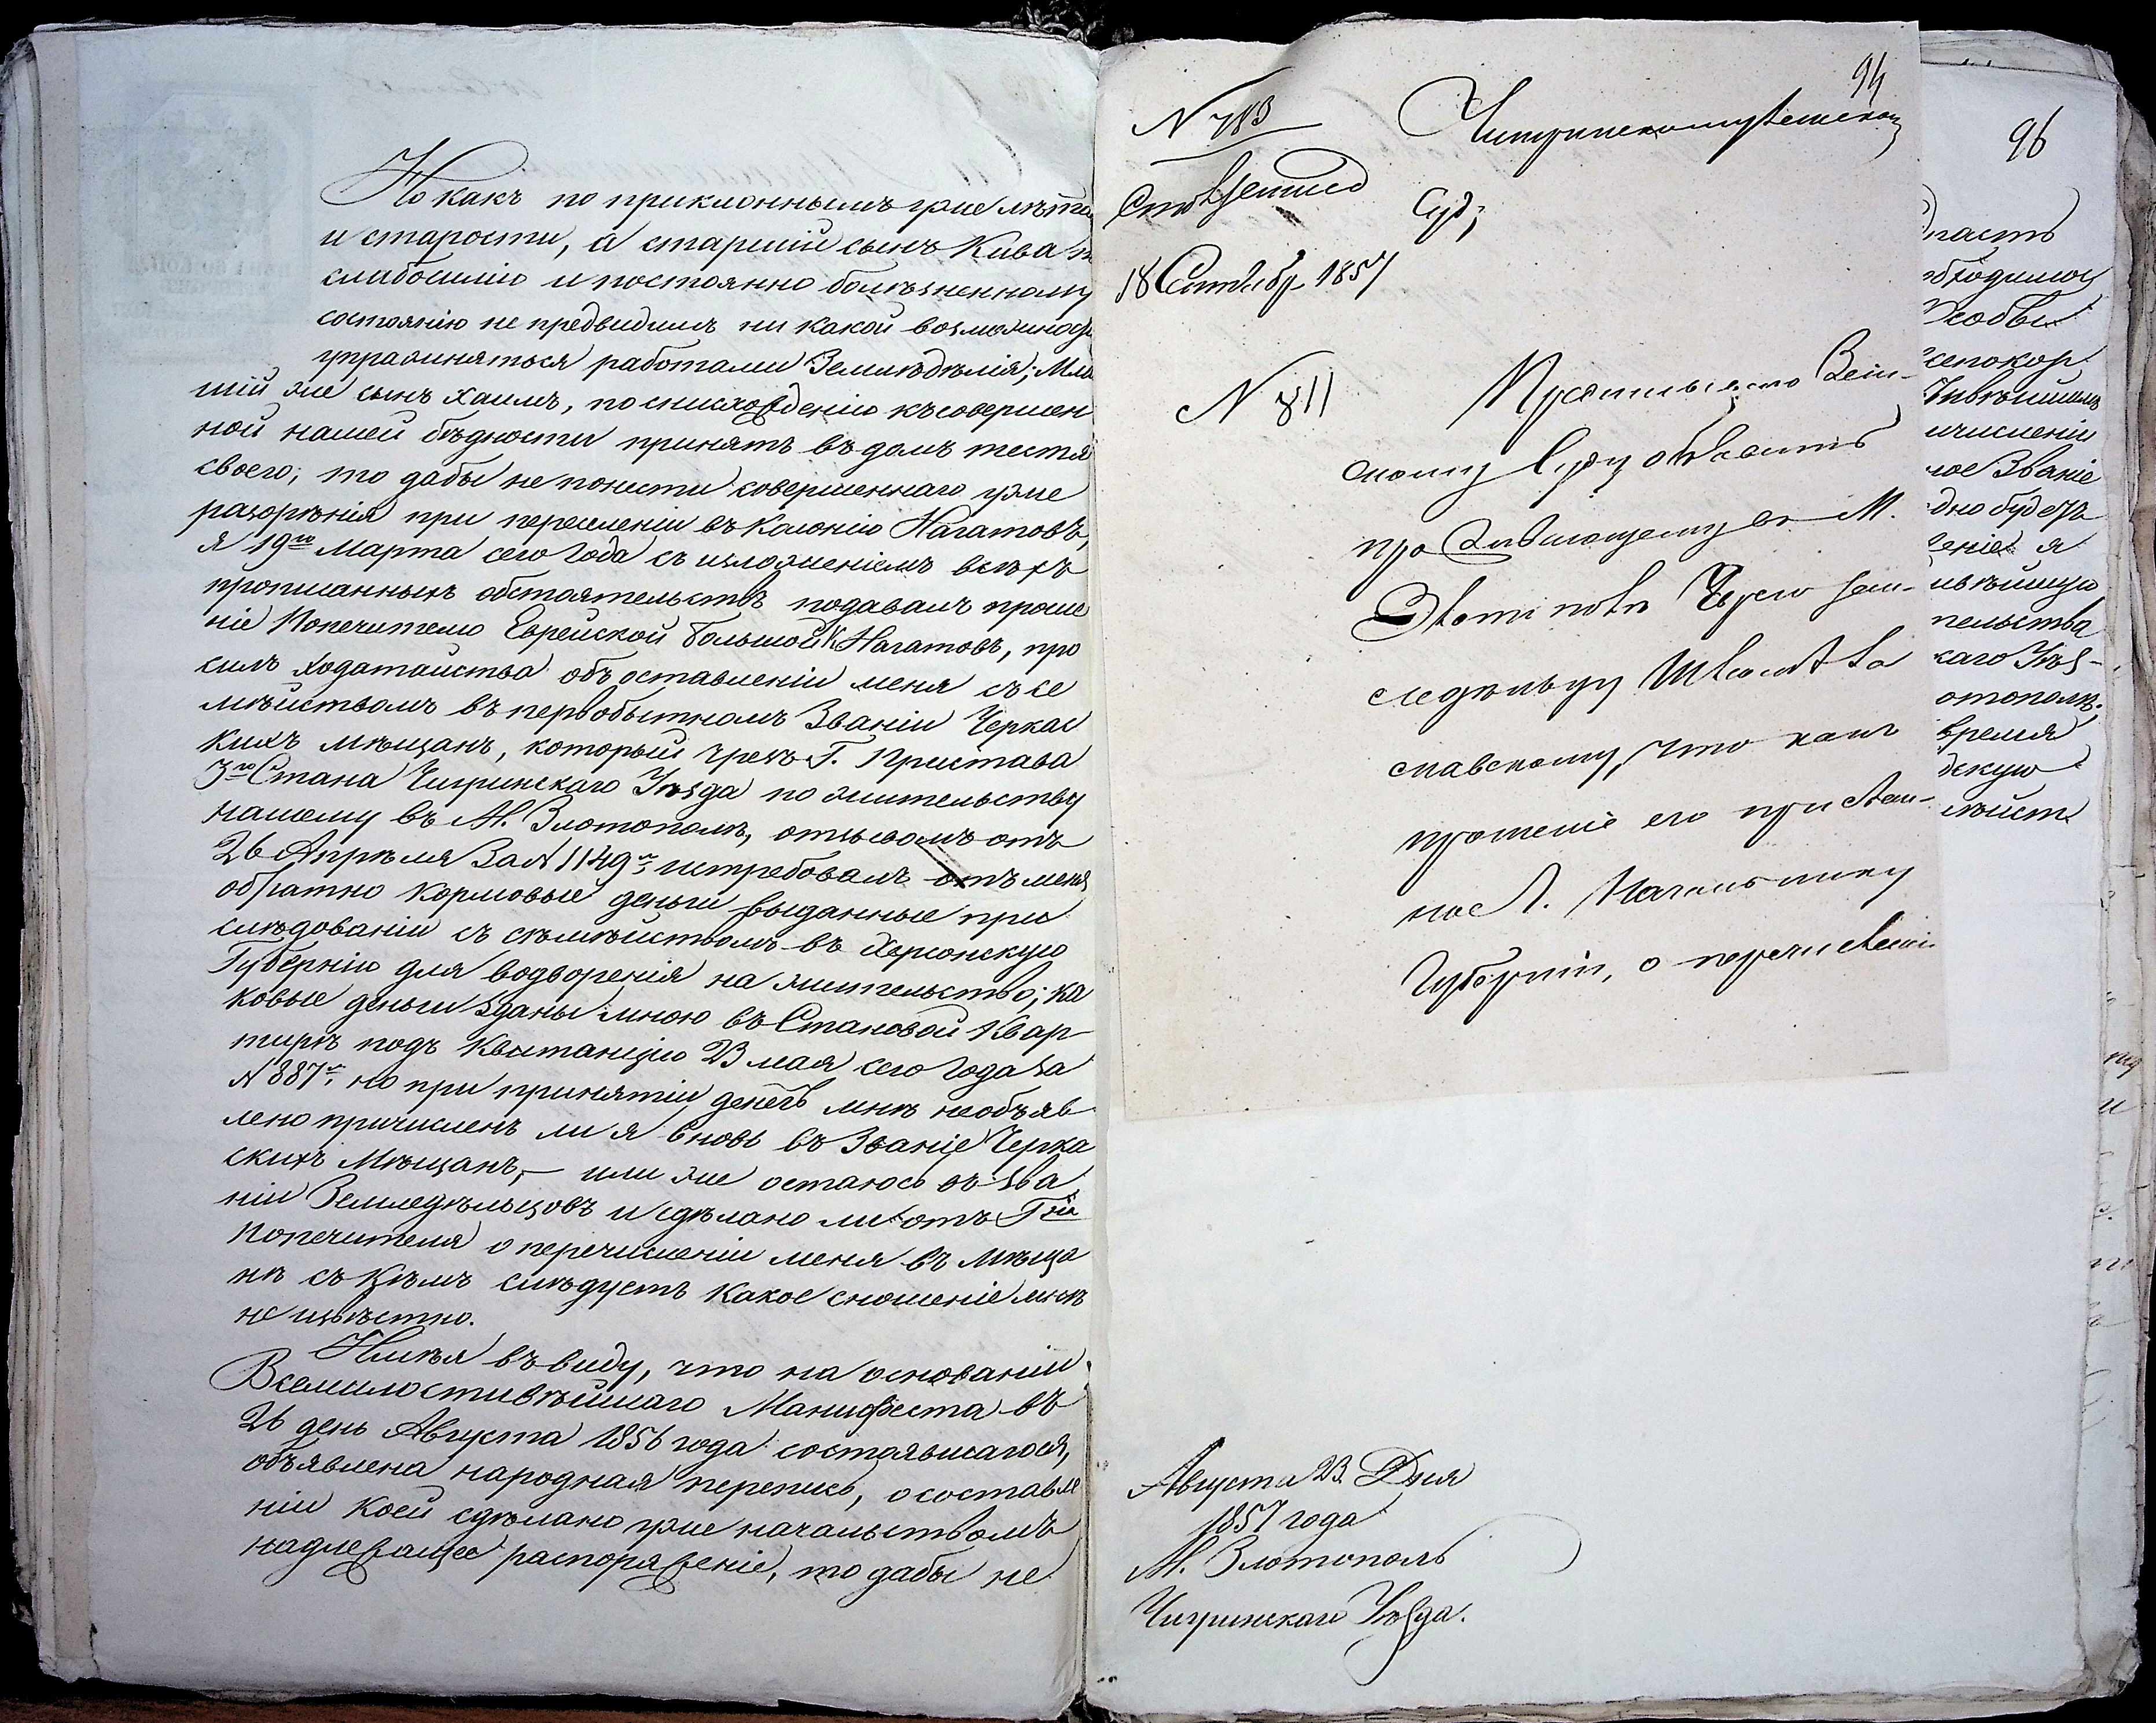 Но какъ по приклоннымъ уже лѣта
и старости, а старшій сынъ Кива п
слабосилію и постоянно болѣзненному
состоянію не предвидимъ ни какой возможнос
упражняться работами Земледѣлія; Мла
шій же сынъ Хаимъ, по снисхожденію къ совершен
ной нашей бѣдности принятъ въ домъ тестя
своего; то дабы не понести совершеннаго уже
разорѣнія при переселеніи въ Колонію Нагатовъ,
я 19го Марта сего Года съ изложеніемъ всѣхъ
прописанныхъ обстоятельствъ подавалъ проше
ніе Попечителю Еврейской Большой К Нагатовъ, про
силъ ходатайства объ оставленіи меня съ се
мѣйствомъ въ первобытномъ Званіи Черкас
кихъ мѣщанъ, который чрезъ Г. Пристава
3го Стана Чигринскаго Уѣзда по жительству
нашему въ М. Златополѣ, отзывомъ отъ
26 Апрѣля За N 1149м истребовалъ отъ меня
обратно кормовые деньги выданные при
слѣдованіи съ сѣмѣйствомъ въ Херсонскую
Губернію для водворенія на жительство; ка
ковые деньги зданы мною въ Становой Квар
тирѣ подъ Квытанцію 23 мая сего года за
N 887м, но при принятіи денегъ мнѣ необъяв
лено причисленъ ли я вновь въ Званіе Черка
скихъ Мѣщанъ, — или же остаюсь въ зва
ніи Земледѣльцовъ и сдѣлано ли отъ Гна
Попечителя о перечисленіи меня въ мѣща
нѣ съ кѣмъ слѣдуетъ какое сношеніе мнѣ
не извѣстно.
Имѣя въ виду, что на основаніи
Всемилостивѣйшаго Манифеста въ
26 день Августа 1856 года состоявшагося,
объявлена народная перепись, о составле
ніи коей сдѣлано уже начальствомъ
надлежащее распоряженіе, то дабы не
94
N 783
Чигринскому Земском
Суд;
18 Сентябр 1857
N 811
Зем-
скому Суду объявить
проживающему въ М.
Златополѣ Еврею Зем-
ледѣльцу
славскому, что какъ
прошеніе его
но Г. Начальнику
Губерніи, о перечислені
Августа 23. Дня
1857 года
М. Златополь
Чигринскаго Уѣзда.
96
пасть
обходимой
Особы
сепокор
ичисленіи
ное Званіе
дно будетъ
еніе я
пельства
каго Уѣз-
отополѣ.
время
скую
мѣйст